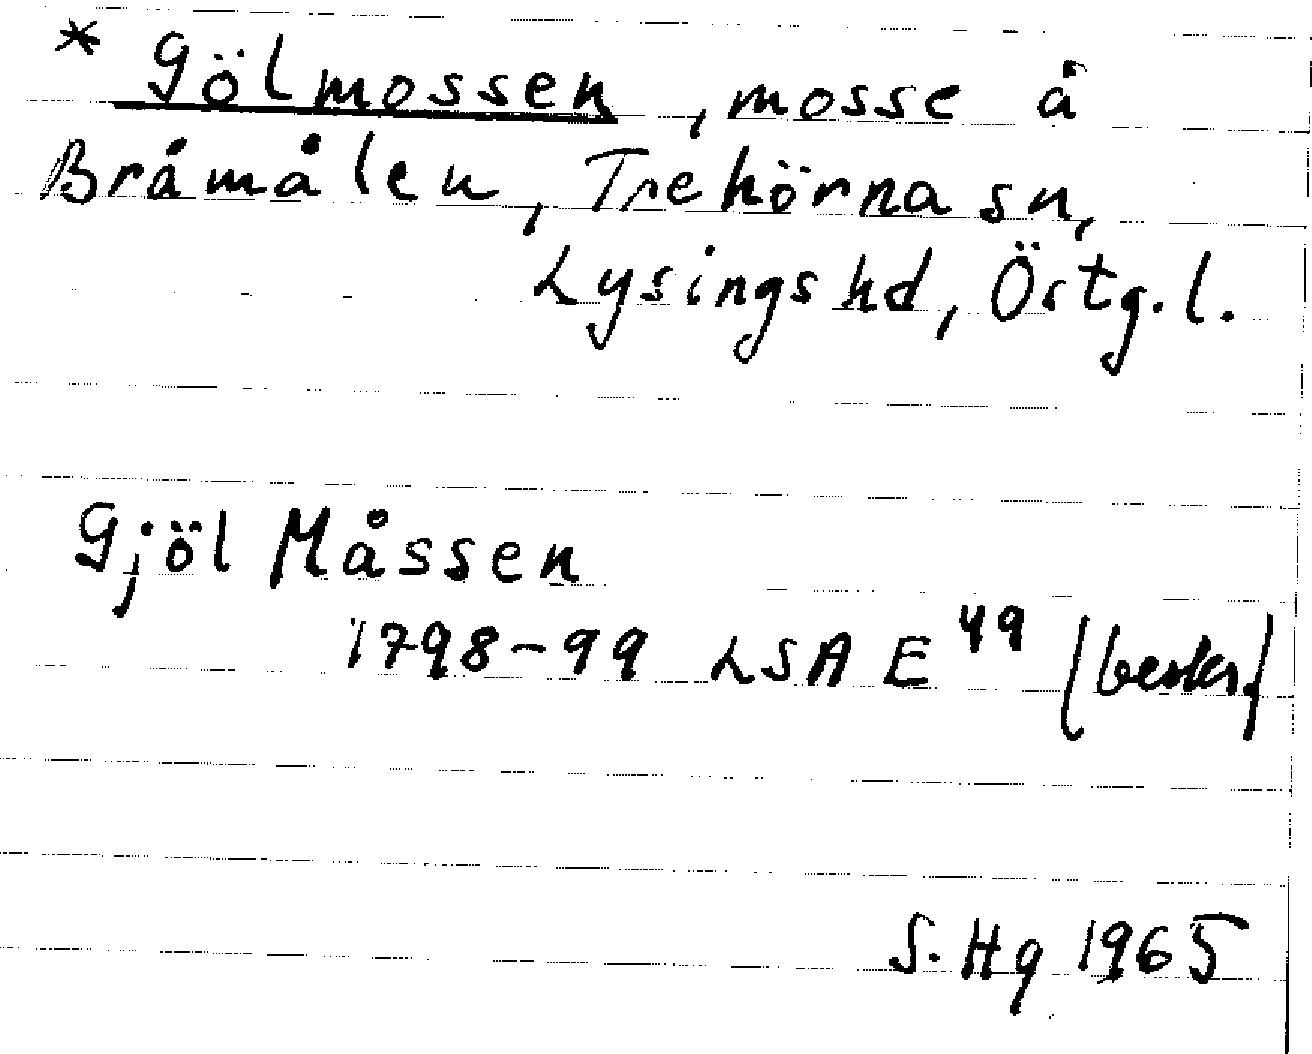 * Gölmossen, mosse å
Bråmålen, Trehörna sn,
Lysings hd, Östg. l.
Gjöl Måssen
1798-99 LSA E 49 (beskr.)
S. Hg 1965